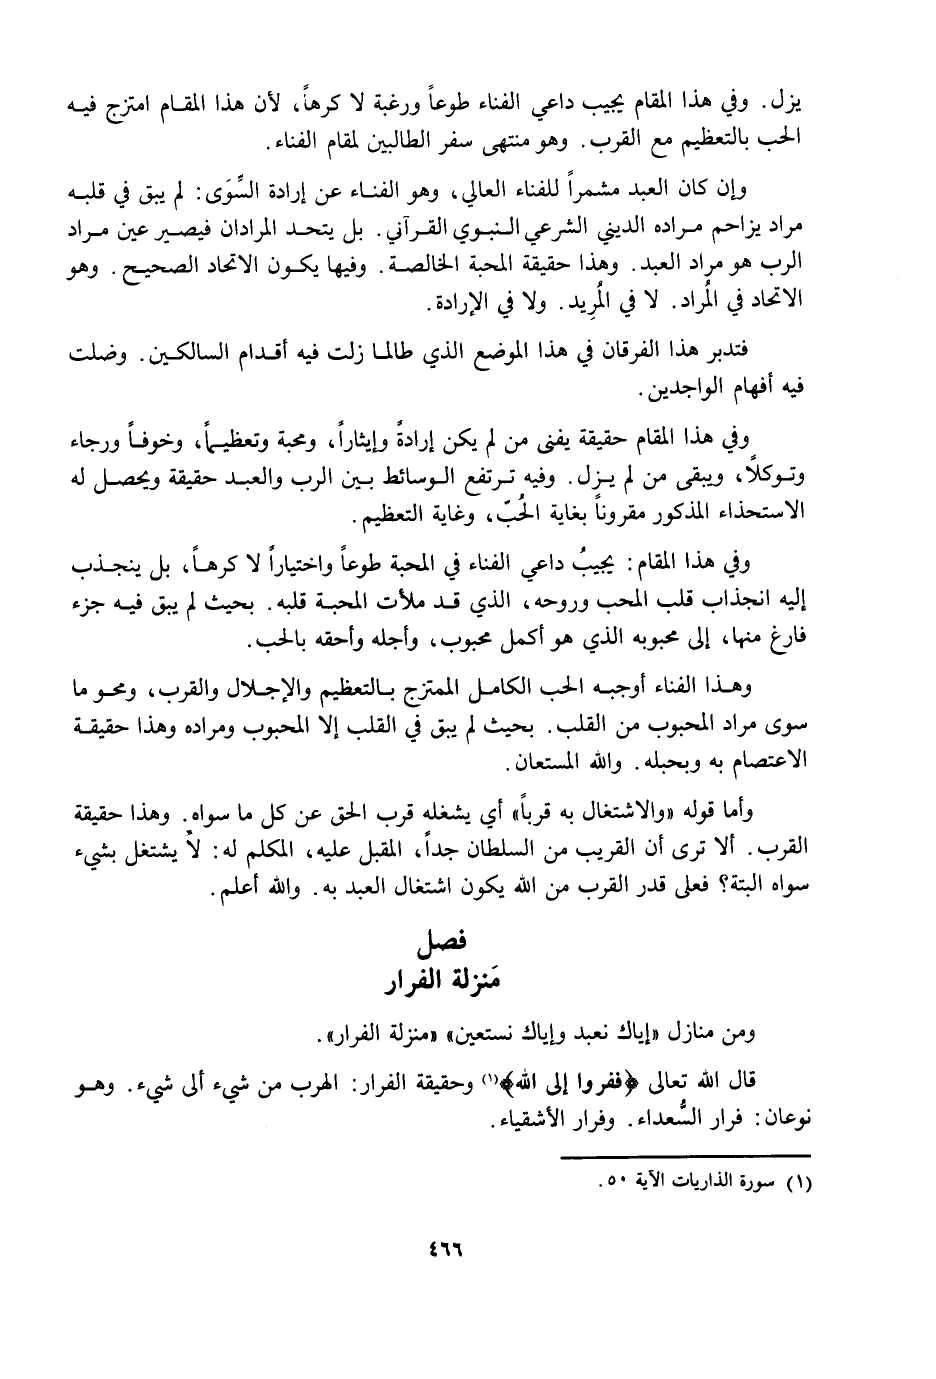 يزل. وفي هذا المقام يجيب داعي الفناء طوعاً ورغبة لا كرهاً، لأن هذا المقام امتزج فيه
الحب بالتعظيم مع القرب. وهو منتهى سفر الطالبين لمقام الفناء.
وإن كان العبد مشمراً للفناء العالي، وهو الفناء عن إرادة السِّوَى: لم يبق في قلبه
مراد يزاحم مراده الديني الشرعي النبوي القرآني. بل يتحد المرادان فيصير عين مراد
الرب هو مراد العبد. وهذا حقيقة المحبة الخالصة. وفيها يكون الاتحاد الصحيح. وهو
الاتحاد في المُراد. لا في المُرِيد. ولا في الإرادة.
فتدبر هذا الفرقان في هذا الموضع الذي طالما زلت فيه أقدام السالكين. وضلت
فيه أفهام الواجدين.
وفي هذا المقام حقيقة يفنى من لم يكن إرادةً وإيثاراً، ومحبة وتعظيماً، وخوفاً ورجاء
وتوكلاً، ويبقى من لم يزل. وفيه ترتفع الوسائط بين الرب والعبد حقيقة ويحصل له
الاستحذاء المذكور مقروناً بغاية الحُبّ، وغاية التعظيم.
وفي هذا المقام: يجيبُ داعي الفناء في المحبة طوعاً واختياراً لا كرهاً، بل ينجذب
إليه انجذاب قلب المحب وروحه، الذي قد ملأت المحبة قلبه. بحيث لم يبق فيه جزء
فارغ منها، إلى محبوبه الذي هو أكمل محبوب، وأجله وأحقه بالحب.
وهذا الفناء أوجبه الحب الكامل الممتزج بالتعظيم والإجلال والقرب، ومحو ما
سوى مراد المحبوب من القلب. بحيث لم يبق في القلب إلا المحبوب ومراده وهذا حقيقة
الاعتصام به وبحبله. والله المستعان.
وأما قوله «والاشتغال به قرباً» أي يشغله قرب الحق عن كل ما سواه. وهذا حقيقة
القرب. ألا ترى أن القريب من السلطان جداً، المقبل عليه، المكلم له: لا يشتغل بشيء
سواه البتة؟ فعلى قدر القرب من الله يكون اشتغال العبد به. والله أعلم.
فصل
مَنزلة الفرار
ومن منازل «إياك نعبد وإياك نستعين» «منزلة الفرار».
قال الله تعالى ﴿ففروا إلى الله﴾(١) وحقيقة الفرار: الهرب من شيء ألى شيء. وهو
نوعان: فرار السُّعداء. وفرار الأشقياء.
(١) سورة الذاريات الآية ٥٠.
٤٦٦